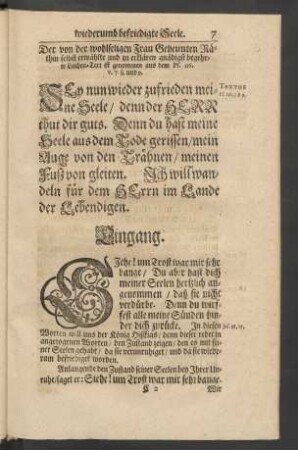 wiederumb befriedigte Seele. 7
Der von der wohlseligen Frau Geheimten Rä-
thin selbst erwählte und zu erklären gnädigst begehr-
te Leichen-Text ist genommen aus dem Ps. 116.
v. 7. 8. und 9.
SEy nun wieder zufrieden mei-
ne Seele/ denn der HERR
thut dir guts. Denn du hast meine
Seele aus dem Tode gerissen/ mein
Auge von den Trähnen/ meinen
Fuß von gleiten. Ich will wan-
deln für dem HErrn im Lande
der Lebendigen.
Eingang.
SJehe! um Trost war mir sehr
bange/ Du aber hast dich
meiner Seelen hertzlich an-
genommen/ daß sie nicht
verdürbe. Denn du wirf-
fest alle meine Sünden hin-
der dich zurücke. In diesen
Worten will uns der König Hißkias/ denn dieser redet in
angezogenen Worten/ den Zustand zeigen/ den es mit sei-
ner Seelen gehabt/ da sie verunruhiget/ und da sie wiede-
rum befriediget worden.
Anlangende den Zustand seiner Seelen bey Ihrer Un-
ruhe/ saget er: Siehe! um Trost war mir sehr bange.
2 Wir